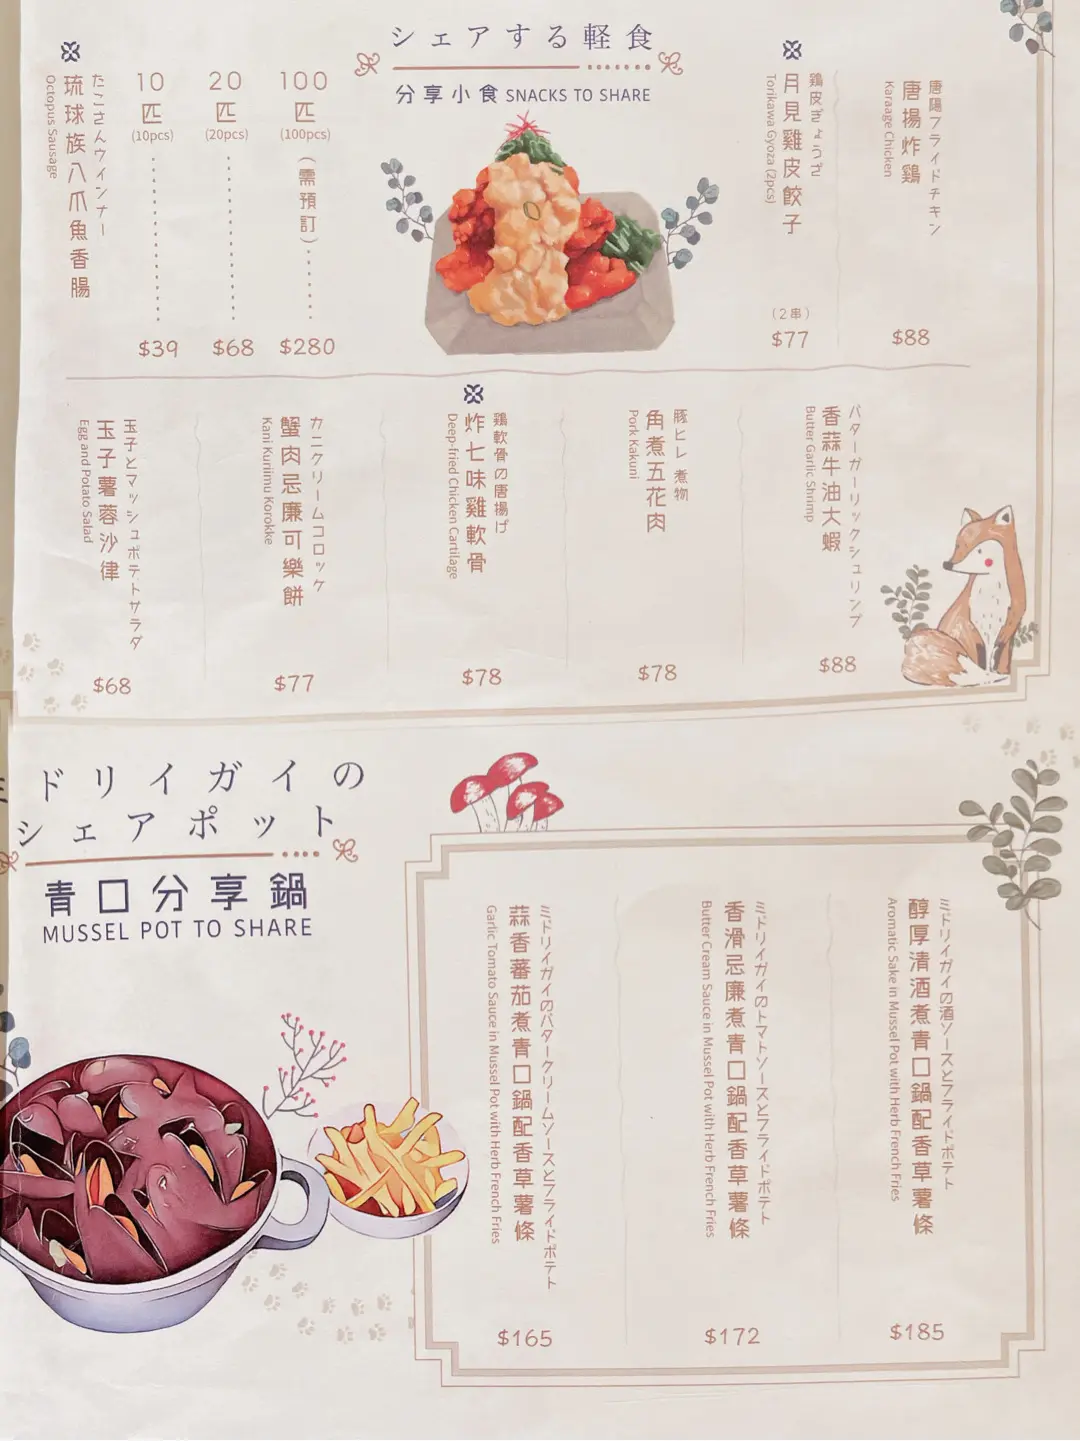 シェアする軽食
分享小食 SNACKS TO SHARE
唐陽フライドチキン
唐揚炸鶏
Karaage Chicken
$88
鶏皮ぎょうざ
月見雞皮餃子
Torikawa Gyoza (2pcs)
(2串)
$77
100
匹
(100pcs)
(需預訂)
$280
20
匹
(20pcs)
$68
10
匹
(10pcs)
$39
たこさんウィンナー
琉球族八爪魚香腸
Octopus Sausage
バターガーリックシュリンプ
香蒜牛油大蝦
Butter Garlic Shrimp
$88
豚ヒレ 煮物
角煮五花肉
Pork Kakuni
$78
鶏軟骨の唐揚げ
炸七味雞軟骨
Deep-fried Chicken Cartilage
$78
カニクリームコロッケ
蟹肉忌廉可樂餅
Kani Kuriimu Korokke
$77
玉子とマッシュポテトサラダ
玉子薯蓉沙律
Egg and Potato Salad
$68
ドリイガイの
シェアポット
青口分享鍋
MUSSEL POT TO SHARE
ミドリイガイの酒ソースとフライドポテト
醇厚清酒煮青口鍋配香草薯條
Aromatic Sake in Mussel Pot with Herb French Fries
$185
ミドリイガイのトマトソースとフライドポテト
香滑忌廉煮青口鍋配香草薯條
Butter Cream Sauce in Mussel Pot with Herb French Fries
$172
ミドリイガイのバタークリームソースとフライドポテト
蒜香蕃茄煮青口鍋配香草薯條
Garlic Tomato Sauce in Mussel Pot with Herb French Fries
$165